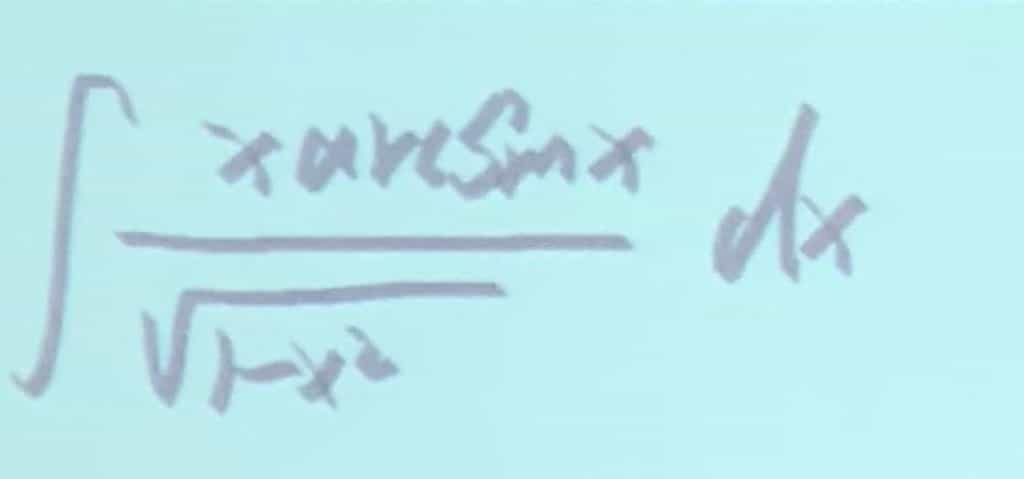 ∫ x arcsin x / √1-x² dx